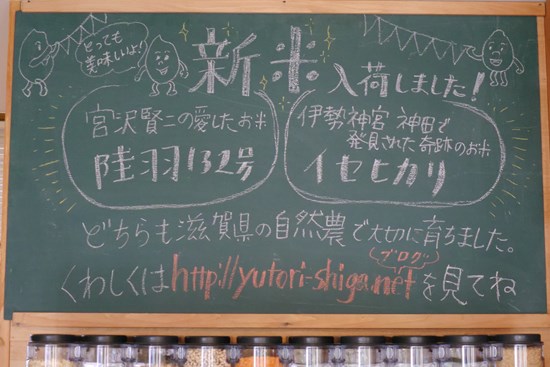 とっても
美味しいよ!
新米 入荷しました!
宮沢賢二の愛したお米
陸羽132号
伊勢神宮 神田で
発見された奇跡のお米
イセヒカリ
どちらも滋賀県の自然農で大切に育ちました。
(ブログ)
くわしくはhttp://yutori-shiga.netを見てね